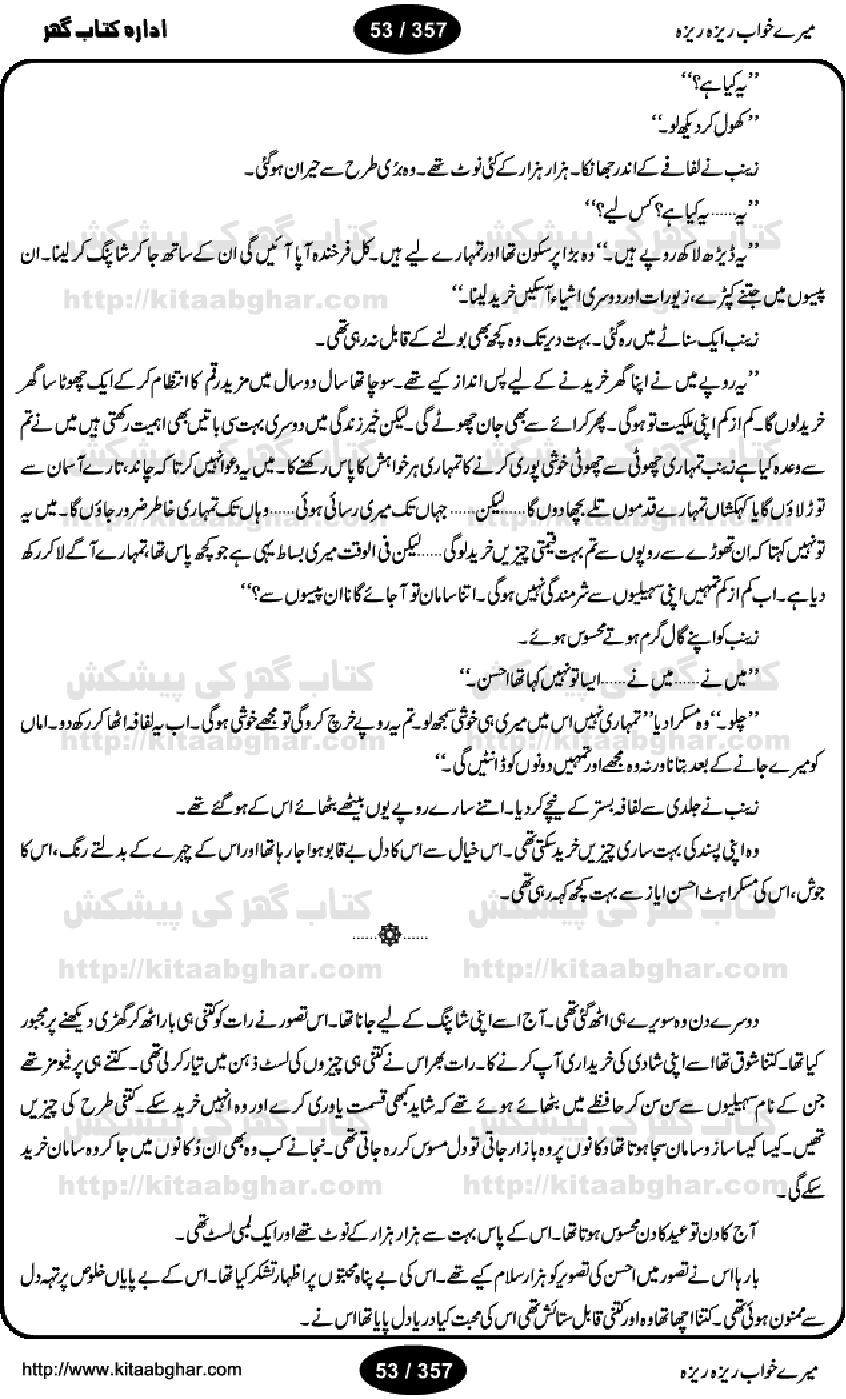 میرے خواب ریزہ ریزہ
53 / 357
ادارہ کتاب گھر
’’یہ کیا ہے؟‘‘
’’کھول کر دیکھ لو۔‘‘
زینب نے لفافے کے اندر جھانکا۔ ہزار ہزار کے کئی نوٹ تھے۔ وہ بڑی طرح سے حیران ہو گئی۔
’’یہ...... یہ کیا ہے؟ کس لیے؟‘‘
کتاب گھر کی پیشکش کتاب گھر کی پیشکش
’’یہ ڈیڑھ لاکھ روپے ہیں۔‘‘ وہ بڑا پرسکون تھا اور تمہارے لیے ہیں۔ کل فرخندہ آپا آئیں گی ان کے ساتھ جا کر شاپنگ کر لینا۔ ان
http://kitaabghar.com http://kitaabghar.com
پیسوں میں جتنے کپڑے، زیورات اور دوسری اشیاء آسکیں خرید لینا۔‘‘
زینب ایک سناٹے میں رہ گئی۔ بہت دیر تک وہ کچھ بھی بولنے کے قابل نہ رہی تھی۔
’’یہ روپے میں نے اپنا گھر خریدنے کے لیے پس انداز کیے تھے۔ سوچا تھا سال دو سال میں مزید رقم کا انتظام کر کے ایک چھوٹا سا گھر
خرید لوں گا۔ کم از کم اپنی ملکیت تو ہو گی۔ پھر کرائے سے بھی جان چھوٹے گی۔ لیکن خیر زندگی میں دوسری بہت سی باتیں بھی اہمیت رکھتی ہیں میں نے تم
کتاب گھر کی پیشکش کتاب گھر کی پیشکش
سے وعدہ کیا ہے زینب تمہاری چھوٹی سے چھوٹی خوشی پوری کرنے کا تمہاری ہر خواہش کا پاس رکھنے کا۔ میں یہ دعوا نہیں کرتا کہ چاند، تارے آسمان سے
توڑ لاؤں گا یا کہکشاں تمہارے قدموں تلے بچھا دوں گا...... لیکن...... جہاں تک میری رسائی ہوئی...... وہاں تک تمہاری خاطر ضرور جاؤں گا۔ میں یہ
http://kitaabghar.com http://kitaabghar.com
تو نہیں کہتا کہ ان تھوڑے سے روپوں سے تم بہت قیمتی چیزیں خرید لو گی...... لیکن فی الوقت میری بساط یہی ہے جو کچھ پاس تھا، تمہارے آگے لا کر رکھ
دیا ہے۔ اب کم از کم تمہیں اپنی سہیلیوں سے شرمندگی نہیں ہو گی۔ اتنا سامان تو آ جائے گا نا ان پیسوں سے؟‘‘
زینب کو اپنے گال گرم ہوتے محسوس ہوئے۔
کتاب گھر کی پیشکش کتاب گھر کی پیشکش
’’میں نے...... میں نے...... ایسا تو نہیں کہا تھا احسن۔‘‘
’’چلو۔‘‘ وہ مسکرا دیا’’ تمہاری نہیں اس میں میری ہی خوشی سمجھ لو۔ تم یہ روپے خرچ کرو گی تو مجھے خوشی ہو گی۔ اب یہ لفافہ اٹھا کر رکھ دو۔ اماں
http://kitaabghar.com http://kitaabghar.com
کو میرے جانے کے بعد بتانا ورنہ وہ مجھے اور تمہیں دونوں کو ڈانٹیں گی۔‘‘
زینب نے جلدی سے لفافہ بستر کے نیچے کر دیا۔ اتنے سارے روپے یوں بیٹھے بٹھائے اس کے ہو گئے تھے۔
وہ اپنی پسند کی بہت ساری چیزیں خرید سکتی تھی۔ اس خیال سے اس کا دل بے قابو ہوا جا رہا تھا اور اس کے چہرے کے بدلتے رنگ، اس کا
جوش، اس کی مسکراہٹ احسن ایاز سے بہت کچھ کہہ رہی تھی۔
کتاب گھر کی پیشکش کتاب گھر کی پیشکش
......۞......
http://kitaabghar.com http://kitaabghar.com
دوسرے دن وہ سویرے ہی اٹھ گئی تھی۔ آج اسے اپنی شاپنگ کے لیے جانا تھا۔ اس تصور نے رات کو کتنی ہی بار اٹھ کر گھڑی دیکھنے پر مجبور
کیا تھا۔ کتنا شوق تھا اسے اپنی شادی کی خریداری آپ کرنے کا۔ رات بھر اس نے کتنی ہی چیزوں کی لسٹ ذہن میں تیار کر لی تھی۔ کتنے ہی پرفیومز تھے
جن کے نام سہیلیوں سے سن سن کر حافظے میں بٹھائے ہوئے تھے کہ شاید کبھی قسمت یاوری کرے اور وہ انہیں خرید سکے۔ کتنی طرح کی چیزیں
کتاب گھر کی پیشکش کتاب گھر کی پیشکش
تھیں۔ کیسا کیسا ساز و سامان سجا ہوتا تھا دکانوں پر وہ بازار جاتی تو دل مسوس کر رہ جاتی تھی۔ نجانے کب وہ بھی ان دکانوں میں جا کر وہ سامان خرید
http://kitaabghar.com http://kitaabghar.com
سکے گی۔
آج کا دن تو عید کا دن محسوس ہوتا تھا۔ اس کے پاس بہت سے ہزار ہزار کے نوٹ تھے اور ایک لمبی لسٹ تھی۔
بارہا اس نے تصور میں احسن کی تصویر کو ہزار سلام کیے تھے۔ اس کی بے پناہ محبتوں پر اظہار تشکر کیا تھا۔ اس کے بے پایاں خلوص پر تہہ دل
سے ممنون ہوئی تھی۔ کتنا اچھا تھا وہ اور کتنی قابل ستائش تھی اس کی محبت کیا دریا دل پایا تھا اس نے۔
http://www.kitaabghar.com
53 / 357
میرے خواب ریزہ ریزہ